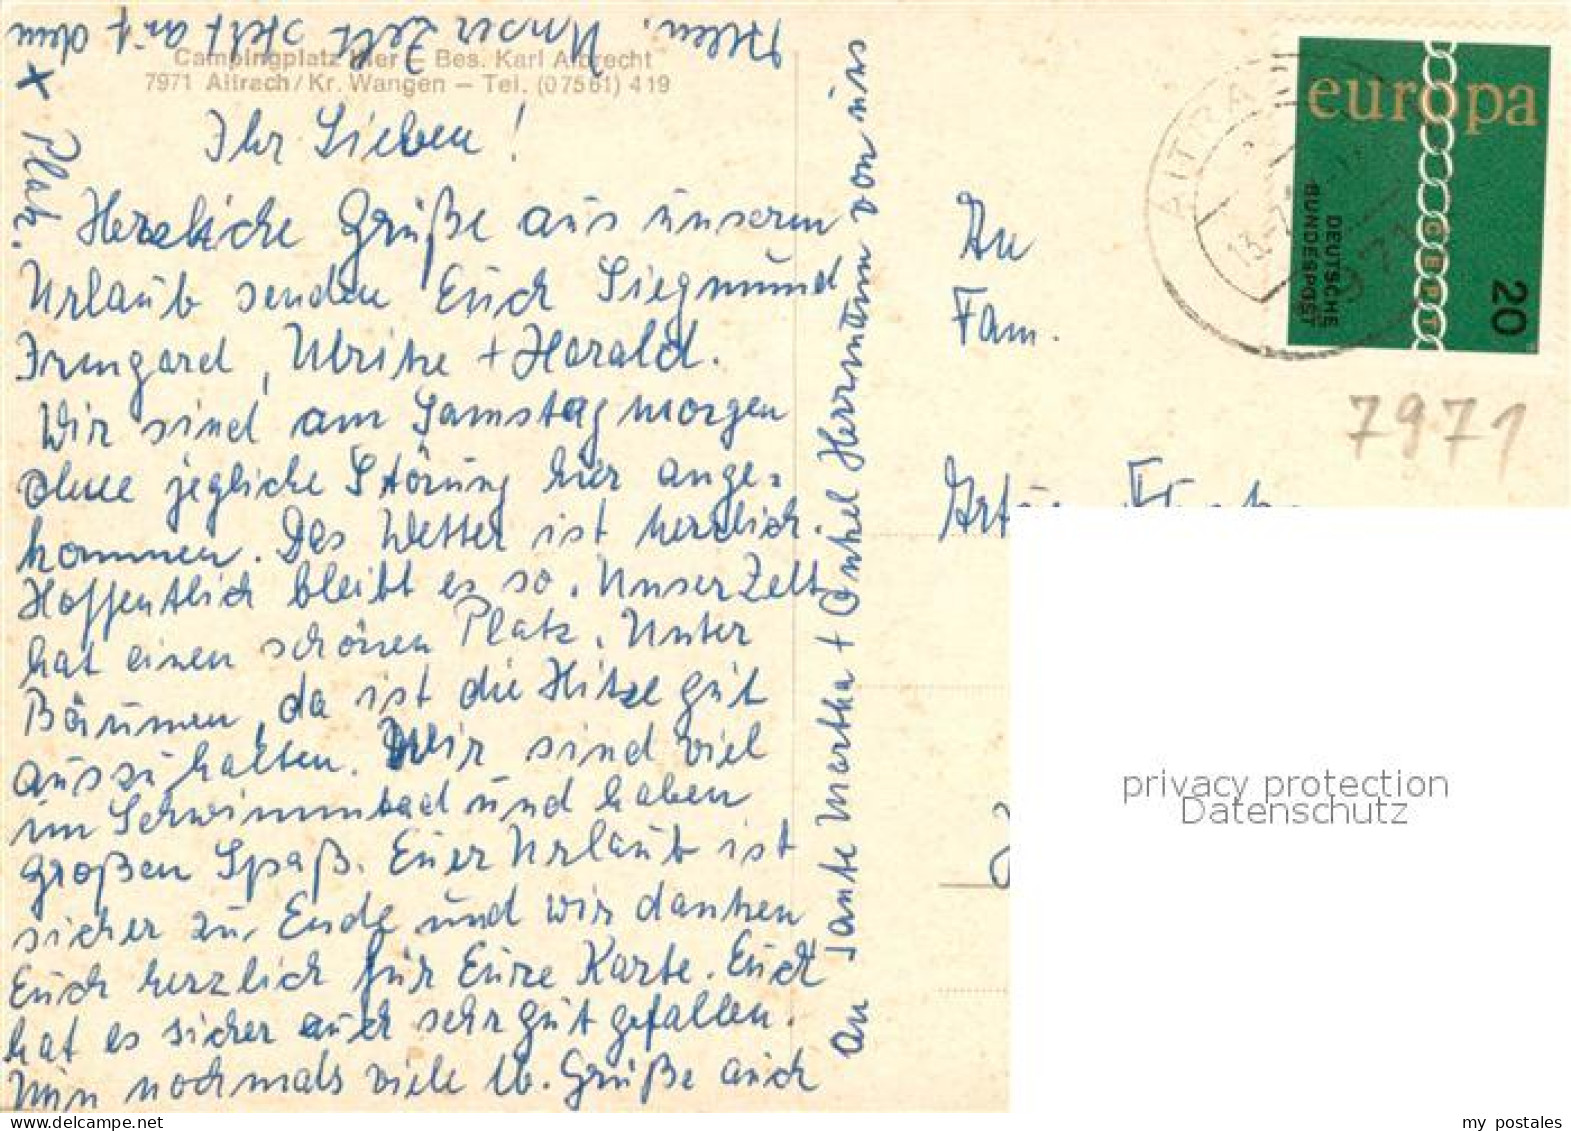 Campingplatz Iller – Bes. Karl Albrecht
7971 Aitrach/Kr. Wangen – Tel. (07561) 419
Ihr Lieben!
Herzliche Grüße aus unserem
Urlaub senden Euch Siegmund
Irmgard, Ulrike + Harald.
Wir sind am Samstag morgen
ohne jegliche Störung hier ange-
kommen. Das Wetter ist herrlich.
Hoffentlich bleibt es so. Unser Zelt
hat einen schönen Platz. Unter
Bäumen, da ist die Hitze gut
auszuhalten. Wir sind viel
im Schwimmbad und haben
großen Spaß. Euer Urlaub ist
sicher zu Ende und wir danken
Euch herzlich für Eure Karte. Euch
hat es sicher auch sehr gut gefallen.
Nun nochmals viele lb. Grüße auch
an Tante Martha + Onkel Herrmann von uns
Allen. Unser Zelt steht auf dem
x Platz.
An
Fam.
Artur
europa
CEPT
DEUTSCHE
BUNDESPOST
20
AITRA
13.-7.
7971
7971
privacy protection
Datenschutz
ansichtskartenhandel.net
my_postales